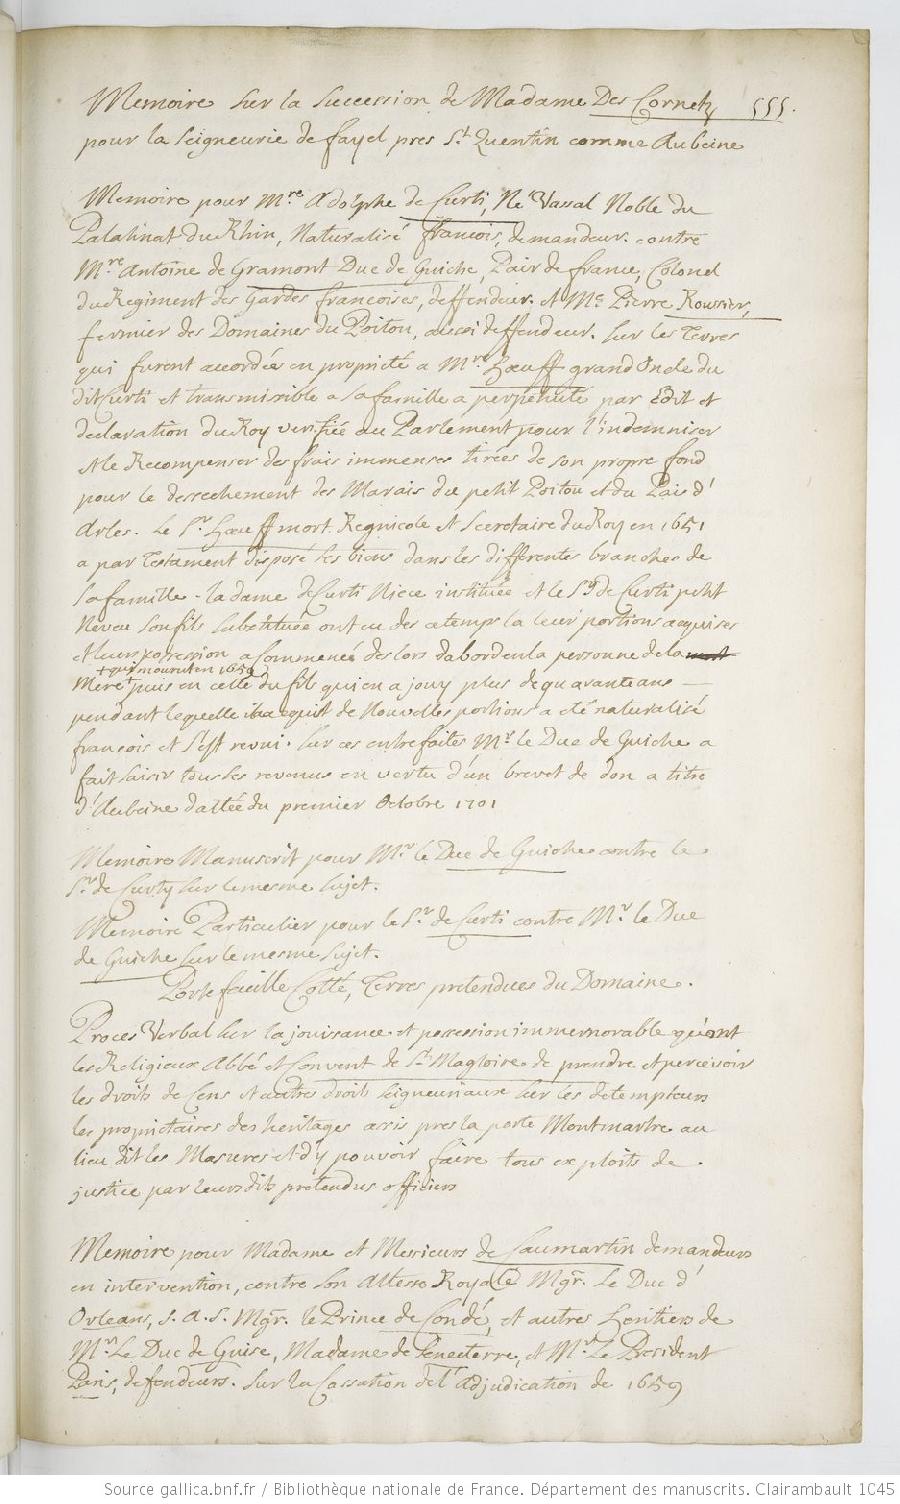 Memoire sur la succession de Madame Des Cornets 555.
pour la Seigneurie de fayel pres St. Quentin comme Aubeine
Memoire pour Mre. Adolphe de Curti, Né Vassal Noble du
Palatinat du Rhin, Naturalisé francois, demandeur. contre
Mre. Antoine de Gramont Duc de Guiche, Pair de france, Colonel
du Regiment des Gardes francoises, deffendeur. et Me. Pierre Roussier,
fermier des Domaines du Poitou, aussi deffendeur. sur les Terres
qui furent accordées en proprieté a Mre. hœuff grand Oncle du
dit Curti et transmissible a sa famille a perpetuité par Edit et
declaration du Roy verifiée au Parlement pour l'indemniser
et le Recompenser des frais immenses tirées de son propre fond
pour le dessechement des Marais du petit Poitou et du Pais d'
Arles. Le Sr. hœuff mort Regnicole et secretaire du Roy en 1651
a par testament disposé ses biens dans les differentes branches de
sa famille - la dame de Curti Niece instituée et le Sr. de Curti petit
Neveu son fils substituée ont eu des ce temps la leur portions acquises
et leur possession a commencé des lors dabord en la personne de la mort
+ qui mourut en 1659
Mere + puis en celle du fils qui en a jouy plus de quarante ans —
pendant lequelle il a acquist de Nouvelles portions a eté naturalisé
francois et s'est reuni. sur ces entrefaites Mr. le Duc de Guiche a
fait saisir tous les revenus en vertu d'un brevet de don a titre
d'Aubeine dattée du premier Octobre 1701
Memoire Manuscrit pour Mr. le Duc de Guiche contre le
Sr. de Curty sur le mesme sujet.
Memoire Particulier pour le Sr. de Curti contre Mr. le Duc
de Guiche sur le mesme sujet.
Porte feuille Cotté, Terres pretendues du Domaine.
Proces Verbal sur la jouissance et possession immemorable qu'ont
les Religieux Abbé et Convent de St. Magloire de prendre et percevoir
les droits de Cens et autres droits seigneuriaux sur les detempteurs
les proprietaires des heritages assis pres la porte Montmartre au
lieu dit les Masures et d'y pouvoir faire tous exploits de
justice par leurs dits pretendus officiers
Memoire pour Madame et Messieurs de Caumartin demandeurs
en intervention, contre son Altesse Royale Mgr. Le Duc d'
Orleans, S. A. S. Mgr. le Prince de Condé, et autres heritiers de
Mr. Le Duc de Guise, Madame de Seneeterre, et Mr. Le President
Paris, defendeurs. sur la Cassation de l'adjudication de 1659
Source gallica.bnf.fr / Bibliothèque nationale de France. Département des manuscrits. Clairambault 1045